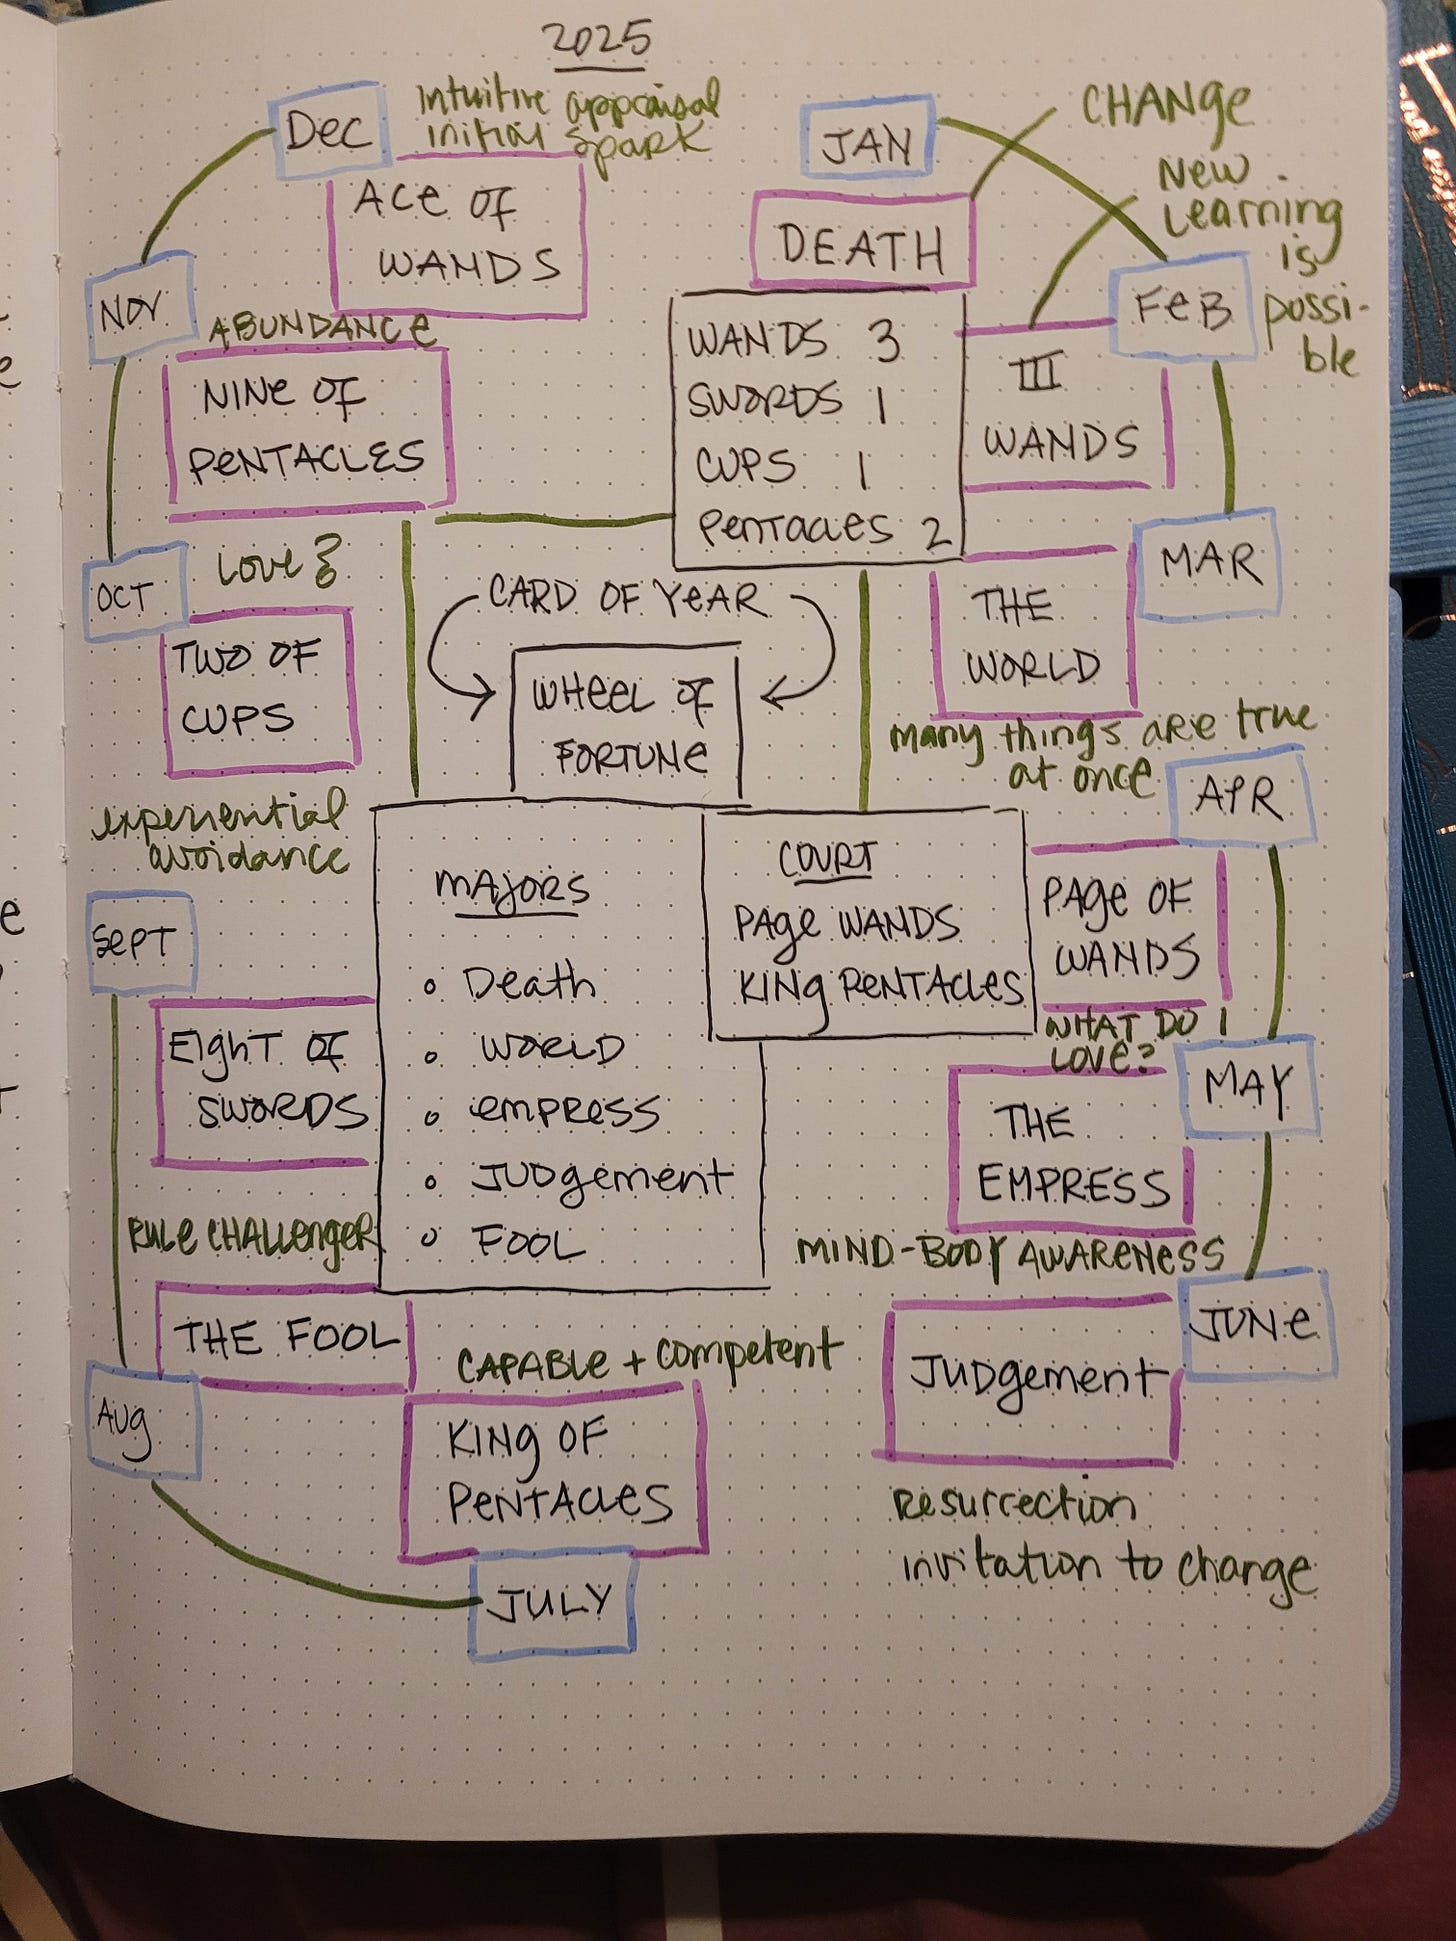 2025
JAN
CHANGE
DEATH
FEB
New
Learning
is
possi-
ble
III
WANDS
MAR
THE
WORLD
many things are true
at once
APR
PAGE OF
WANDS
WHAT DO I
LOVE?
MAY
THE
EMPRESS
MIND-BODY AWARENESS
JUNE
JUDgement
Resurrection
invitation to change
JULY
CAPABLE + competent
KING OF
PENTACLES
AUG
RULE CHALLENGER
THE FOOL
SEPT
experiential
avoidance
EIGHT OF
SWORDS
OCT
LOVE
TWO OF
CUPS
NOV
ABUNDANCE
NINE OF
PENTACLES
Dec
Intuitive appraisal
initial spark
ACE OF
WANDS
WANDS 3
SWORDS 1
CUPS 1
PENTACLES 2
CARD OF YEAR
WHEEL OF
FORTUNE
MAJORS
Death
WORLD
EMPRESS
JUDgement
FOOL
COURT
PAGE WANDS
KING PENTACLES